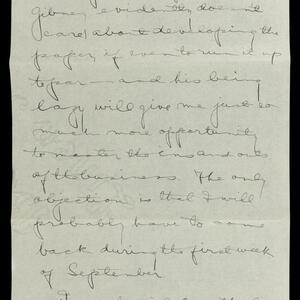 Gibney evidently doesn't
care about developing the
paper, if even to run it up
to par — and his being
lazy will give me just so
much more opportunity
to master the ins and outs
of the business. The only
objection is that I will
probably have to come
back during the first week
of September